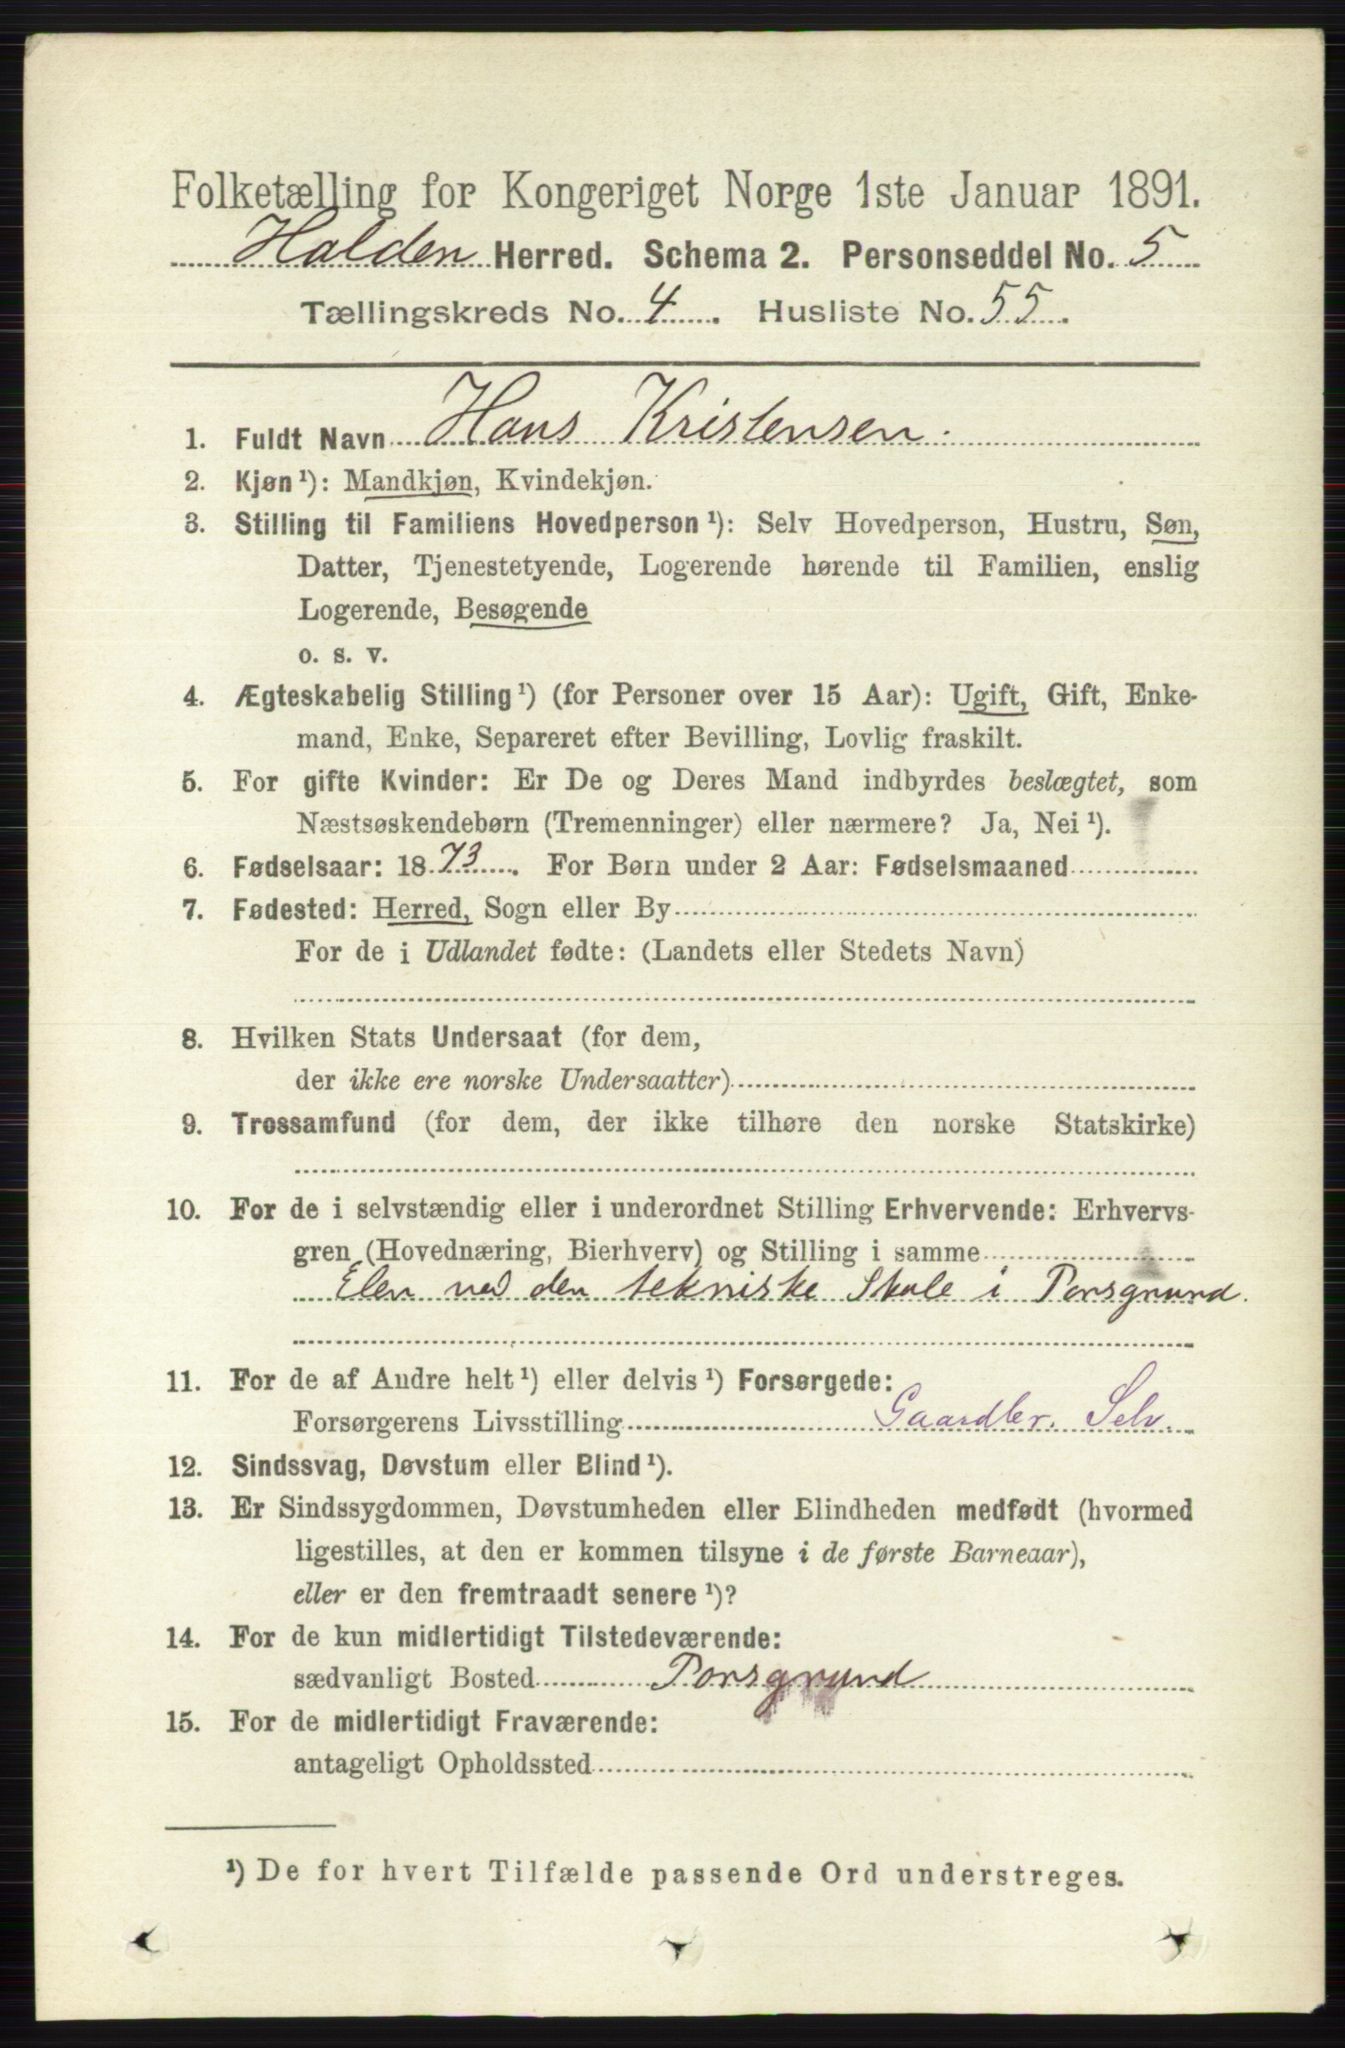 Folketælling for Kongeriget Norge 1ste Januar 1891.
Holden Herred. Schema 2. Personseddel No. 5
Tællingskreds No. 4. Husliste No. 55.
1. Fuldt Navn Hans Kristensen.
2. Kjøn ¹): Mandkjøn, Kvindekjøn.
3. Stilling til Familiens Hovedperson ¹): Selv Hovedperson, Hustru, Søn,
Datter, Tjenestetyende, Logerende hørende til Familien, enslig
Logerende, Besøgende
o. s. v.
4. Ægteskabelig Stilling ¹) (for Personer over 15 Aar): Ugift, Gift, Enke-
mand, Enke, Separeret efter Bevilling, Lovlig fraskilt.
5. For gifte Kvinder: Er De og Deres Mand indbyrdes beslægtet, som
Næstsøskendebørn (Tremenninger) eller nærmere? Ja, Nei ¹).
6. Fødselsaar: 1873. For Børn under 2 Aar: Fødselsmaaned
7. Fødested: Herred, Sogn eller By
For de i Udlandet fødte: (Landets eller Stedets Navn)
8. Hvilken Stats Undersaat (for dem,
der ikke ere norske Undersaatter)
9. Trossamfund (for dem, der ikke tilhøre den norske Statskirke)
10. For de i selvstændig eller i underordnet Stilling Erhvervende: Erhvervs-
gren (Hovednæring, Bierhverv) og Stilling i samme
Elev ved den tekniske Skole i Porsgrund.
11. For de af Andre helt ¹) eller delvis ¹) Forsørgede:
Forsørgerens Livsstilling Gaardbr. Selv.
12. Sindssvag, Døvstum eller Blind ¹).
13. Er Sindssygdommen, Døvstumheden eller Blindheden medfødt (hvormed
ligestilles, at den er kommen tilsyne i de første Barneaar),
eller er den fremtraadt senere ¹)?
14. For de kun midlertidigt Tilstedeværende:
sædvanligt Bosted Porsgrund
15. For de midlertidigt Fraværende:
antageligt Opholdssted
¹) De for hvert Tilfælde passende Ord understreges.